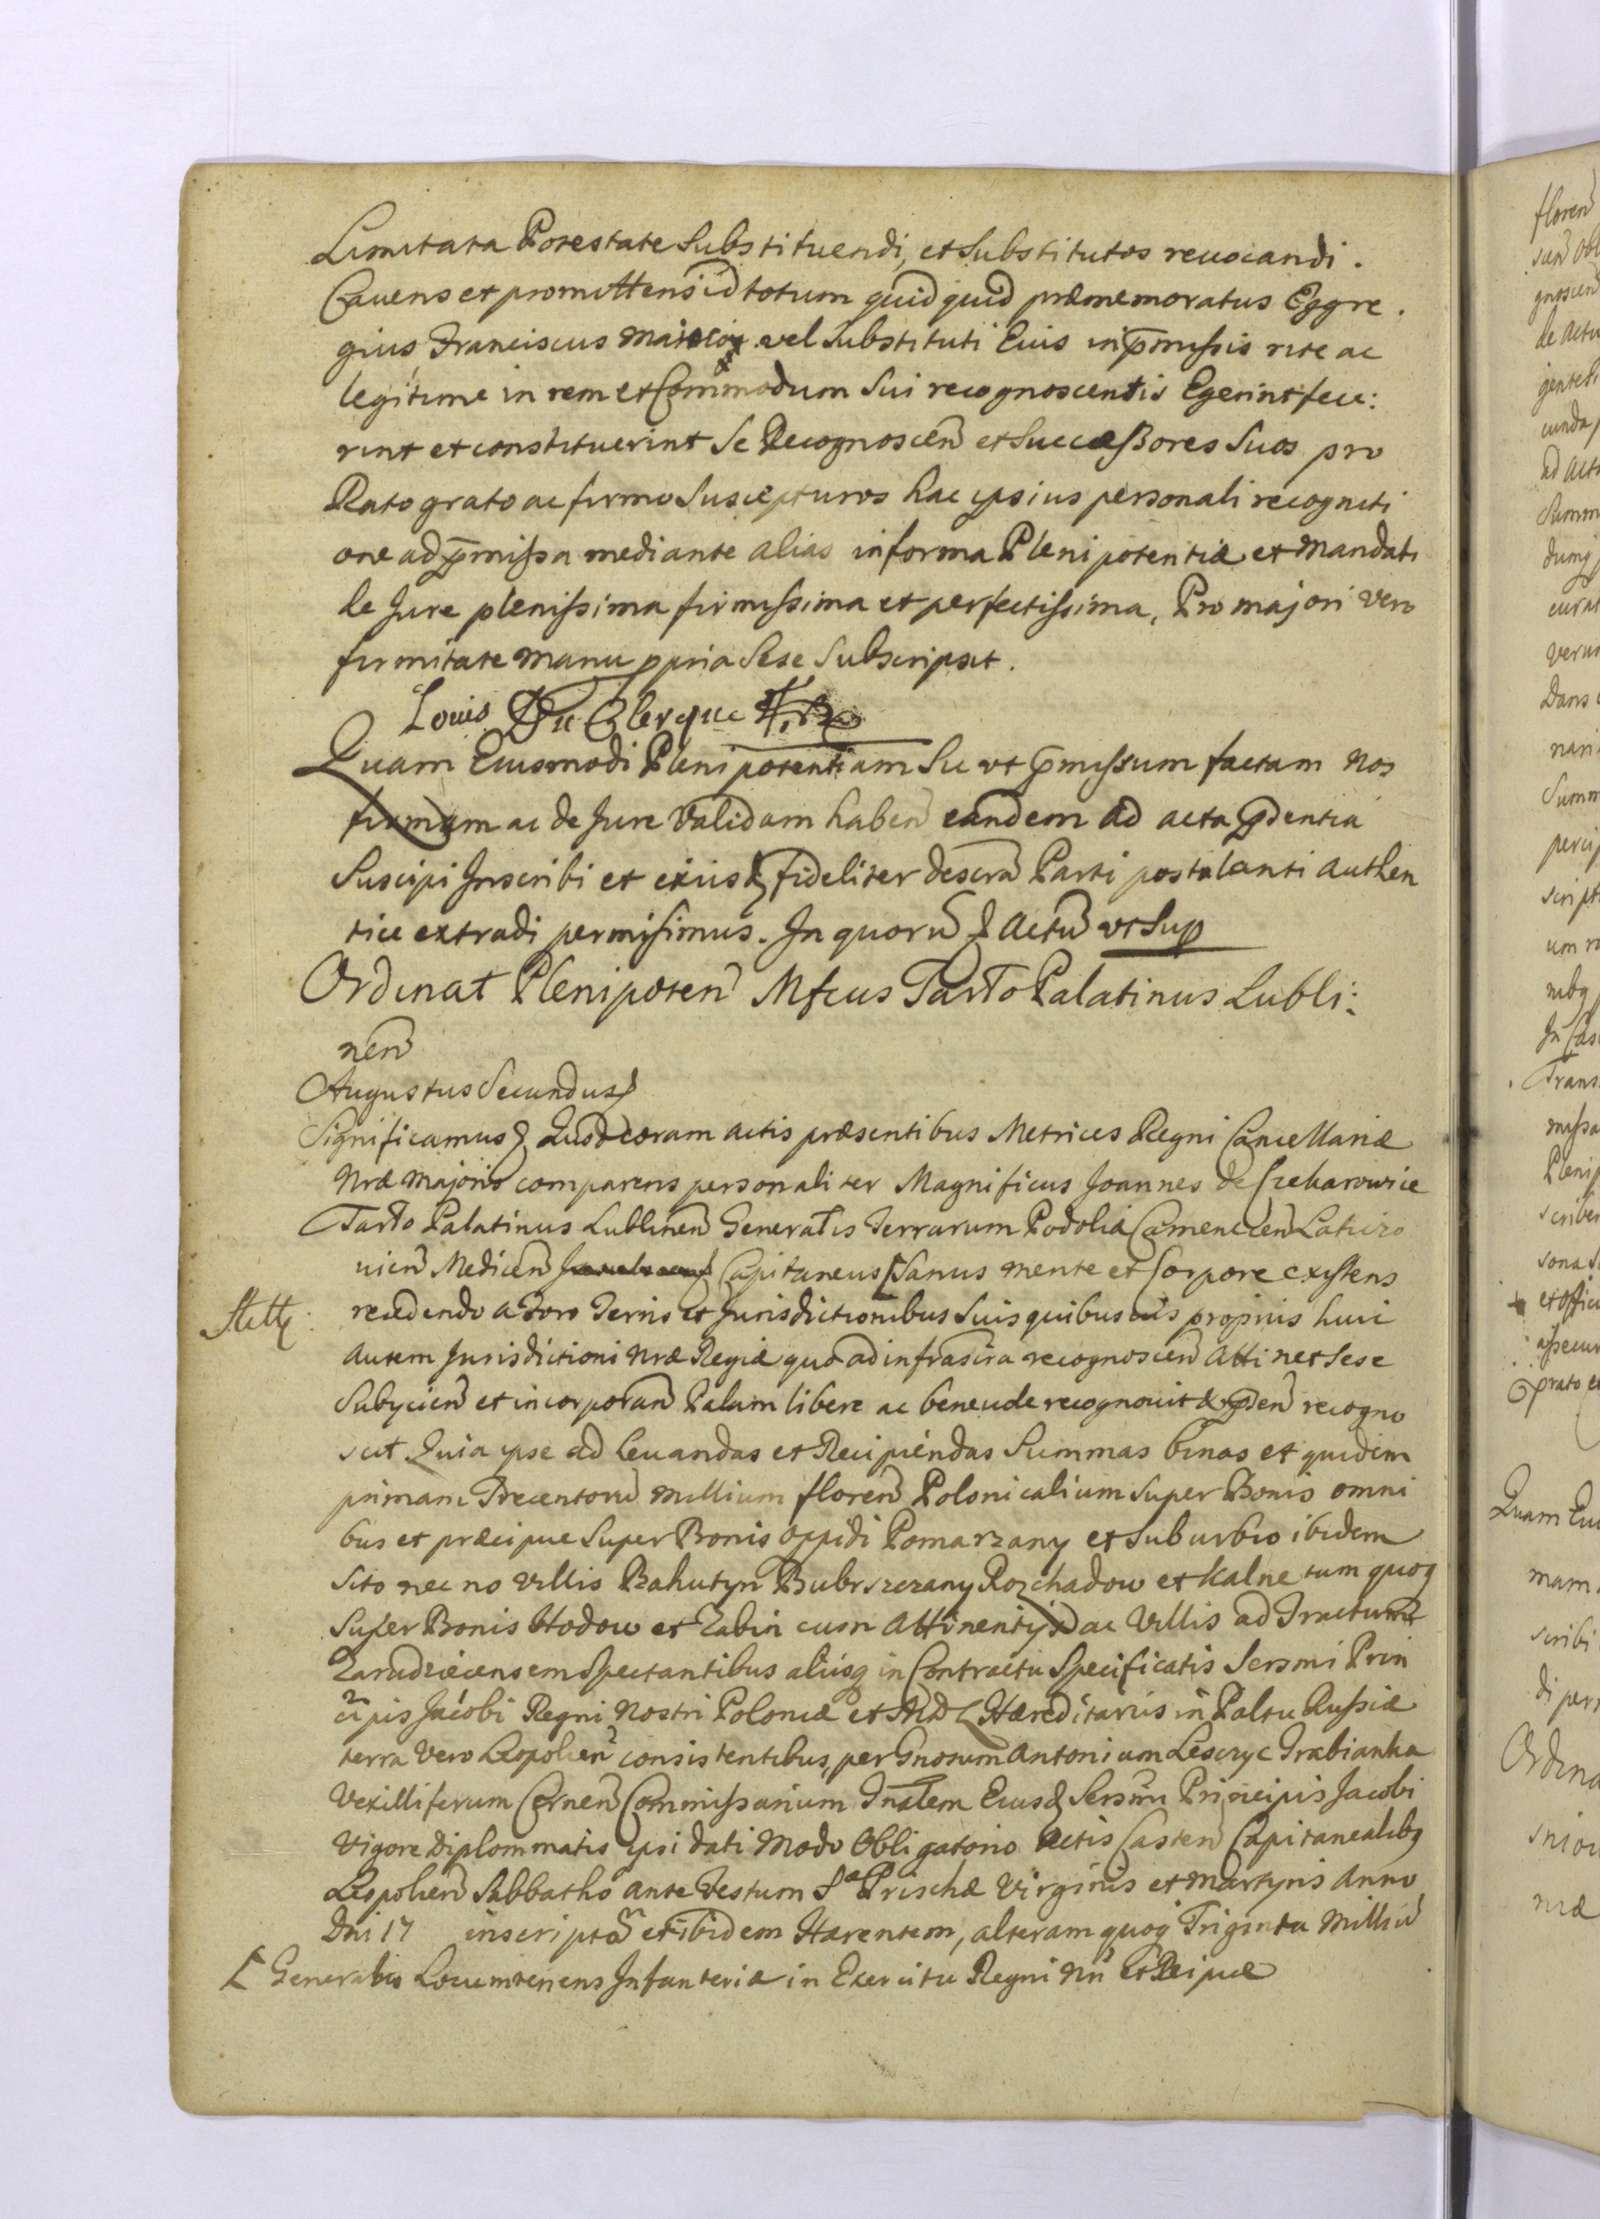 Limitata Potestate Substituendi, et Substitutos reuocandi.
Cavens et promittens id totum quidquid præmemoratus Eggre.
gius Franciscus vel Substituti Eius in p̄missis rite ac
legitime in rem et Commodum Sui recognoscentis Egerint fece:
rint et constituerint Se Recognoscen̄ et Successores Suos pro
Rato grato ac firmo Suscepturos hac ipsius personali recogniti
one ad p̄missa mediante alias in forma Plenipotentiæ et Mandati
de Jure plenissima firmissima et perfectissima, Pro majori vero
firmitate manu ppria Sese Subscripsit.
Louis Du Clerque
Quam Eiusmodi Plenipotentiam Sic vt p̄missum factam Nos
firmam ac de Jure Validam haben̄ eandem ad acta p̄dentia
Suscipi Inscribi et eiusd fideliter descrā Parti postulanti Authen
tice extradi permisimus. In quorū Actū vt Sup
Ordinat Plenipoten̄ Mfcus Tarło Palatinus Lubli:
nen̄
Augustus Secundus
Significamus Quod coram actis præsentibus Metrices Regni Cancellariæ
Nræ Majoris comparens personaliter Magnificus Joannes de Czekarowice
Tarło Palatinus Lublinen̄ Generalis Terrarum Podolia Camenecen̄ Laticzo
uien̄ Medicen̄ Capitaneus Sanus mente et Corpore existens
recedendo a Foro Terris et Jurisdictionibus Suis quibusuis proprijs huic
Autem Jurisdictioni Nræ Regiæ quo ad infrascra recognoscen̄ Attinet Sese
Subyicien̄ et incorporan̄ Palam libere ac beneuole recognouit & p̄den̄ recogno
scit Quia ipse ad leuandas et Recipiendas Summas binas et quidem
primam Trecentorū millium floren̄ Polonicalium Super Bonis omni
bus et præcipue Super Bonis Oppidi Pomarzany et Suburbio ibidem
Sito nec no Villis Bahutyn Bubszczany Rozhadow et Kalne tum quoq
Super Bonis Hodow et Zabin cum Attinentijs ac Villis ad Tractum
Zarudziecensem Spectantibus alijsq in Contractu Specificatis Sersmi Prin
cipis Jacobi Regni Nostri Poloniæ et MDL Hæreditarijs in Paltu Russiæ
terra Vero Leopolien̄ consistentibus, per Gnosum Antonium Leszczyc Grabianka
Vexilliferum Commissarium Gnalem Eiusd Sersmi Principis Jacobi
Vigore diplommatis ipsi dati Modo Obligatorio Actis Castren̄ Capitanealibq
Leopolien̄ Sabbatho ante Festum Sæ Prischæ Virginis et Martyris Anno
Dni 17 inscriptā et ibidem Hærentem, alteram quoq Triginta Milliū
Generalis Locumtenens Infanteriæ in Exercitu Regni Nri Et Reipcæ